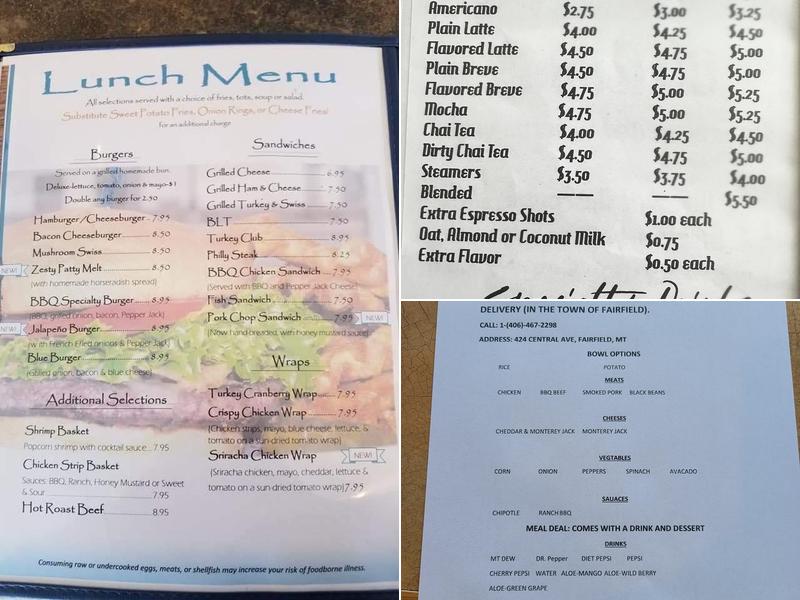 Lunch Menu
All selections served with a choice of fries, tots, soup or salad.
Substitute Sweet Potato Fries, Onion Rings, or Cheese Fries!
for an additional charge
Burgers
Served on a grilled homemade bun.
Deluxe-lettuce, tomato, onion & mayo-$1
Double any burger for 2.50
Hamburger/Cheeseburger 7.95
Bacon Cheeseburger 8.50
Mushroom Swiss 8.50
NEW! Zesty Patty Melt 8.50
(with homemade horseradish spread)
BBQ Specialty Burger 8.95
(BBQ, grilled onion, bacon, Pepper Jack)
NEW! Jalapeño Burger 8.95
(with French fried onions & Pepper Jack)
Blue Burger 8.95
(Grilled onion, bacon & blue cheese)
Additional Selections
Shrimp Basket
Popcorn shrimp with cocktail sauce 7.95
Chicken Strip Basket
Sauces: BBQ, Ranch, Honey Mustard or Sweet
& Sour 7.95
Hot Roast Beef 8.95
Sandwiches
Grilled Cheese 6.95
Grilled Ham & Cheese 7.50
Grilled Turkey & Swiss 7.50
BLT 7.50
Turkey Club 8.95
Philly Steak 8.25
BBQ Chicken Sandwich 7.95
(Served with BBQ and Pepper Jack Cheese)
Fish Sandwich 7.50
Pork Chop Sandwich 7.95 NEW!
(Now hand-breaded, with honey mustard sauce)
Wraps
Turkey Cranberry Wrap 7.95
Crispy Chicken Wrap 7.95
(Chicken strips, mayo, blue cheese, lettuce, &
tomato on a sun-dried tomato wrap)
Sriracha Chicken Wrap NEW!
(Sriracha chicken, mayo, cheddar, lettuce &
tomato on a sun-dried tomato wrap) 7.95
Consuming raw or undercooked eggs, meats, or shellfish may increase your risk of foodborne illness.
Americano $2.75 $3.00 $3.25
Plain Latte $4.00 $4.25 $4.50
Flavored Latte $4.50 $4.75 $5.00
Plain Breve $4.50 $4.75 $5.00
Flavored Breve $4.75 $5.00 $5.25
Mocha $4.75 $5.00 $5.25
Chai Tea $4.00 $4.25 $4.50
Dirty Chai Tea $4.50 $4.75 $5.00
Steamers $3.50 $3.75 $4.00
Blended $5.50
Extra Espresso Shots $1.00 each
Oat, Almond or Coconut Milk $0.75
Extra Flavor $0.50 each
DELIVERY (IN THE TOWN OF FAIRFIELD).
CALL: 1-(406)-467-2298
ADDRESS: 424 CENTRAL AVE, FAIRFIELD, MT
BOWL OPTIONS
RICE POTATO
MEATS
CHICKEN BBQ BEEF SMOKED PORK BLACK BEANS
CHEESES
CHEDDAR & MONTEREY JACK MONTEREY JACK
VEGTABLES
CORN ONION PEPPERS SPINACH AVACADO
SAUACES
CHIPOTLE RANCH BBQ
MEAL DEAL: COMES WITH A DRINK AND DESSERT
DRINKS
MT DEW DR. Pepper DIET PEPSI PEPSI
CHERRY PEPSI WATER ALOE-MANGO ALOE-WILD BERRY
ALOE-GREEN GRAPE